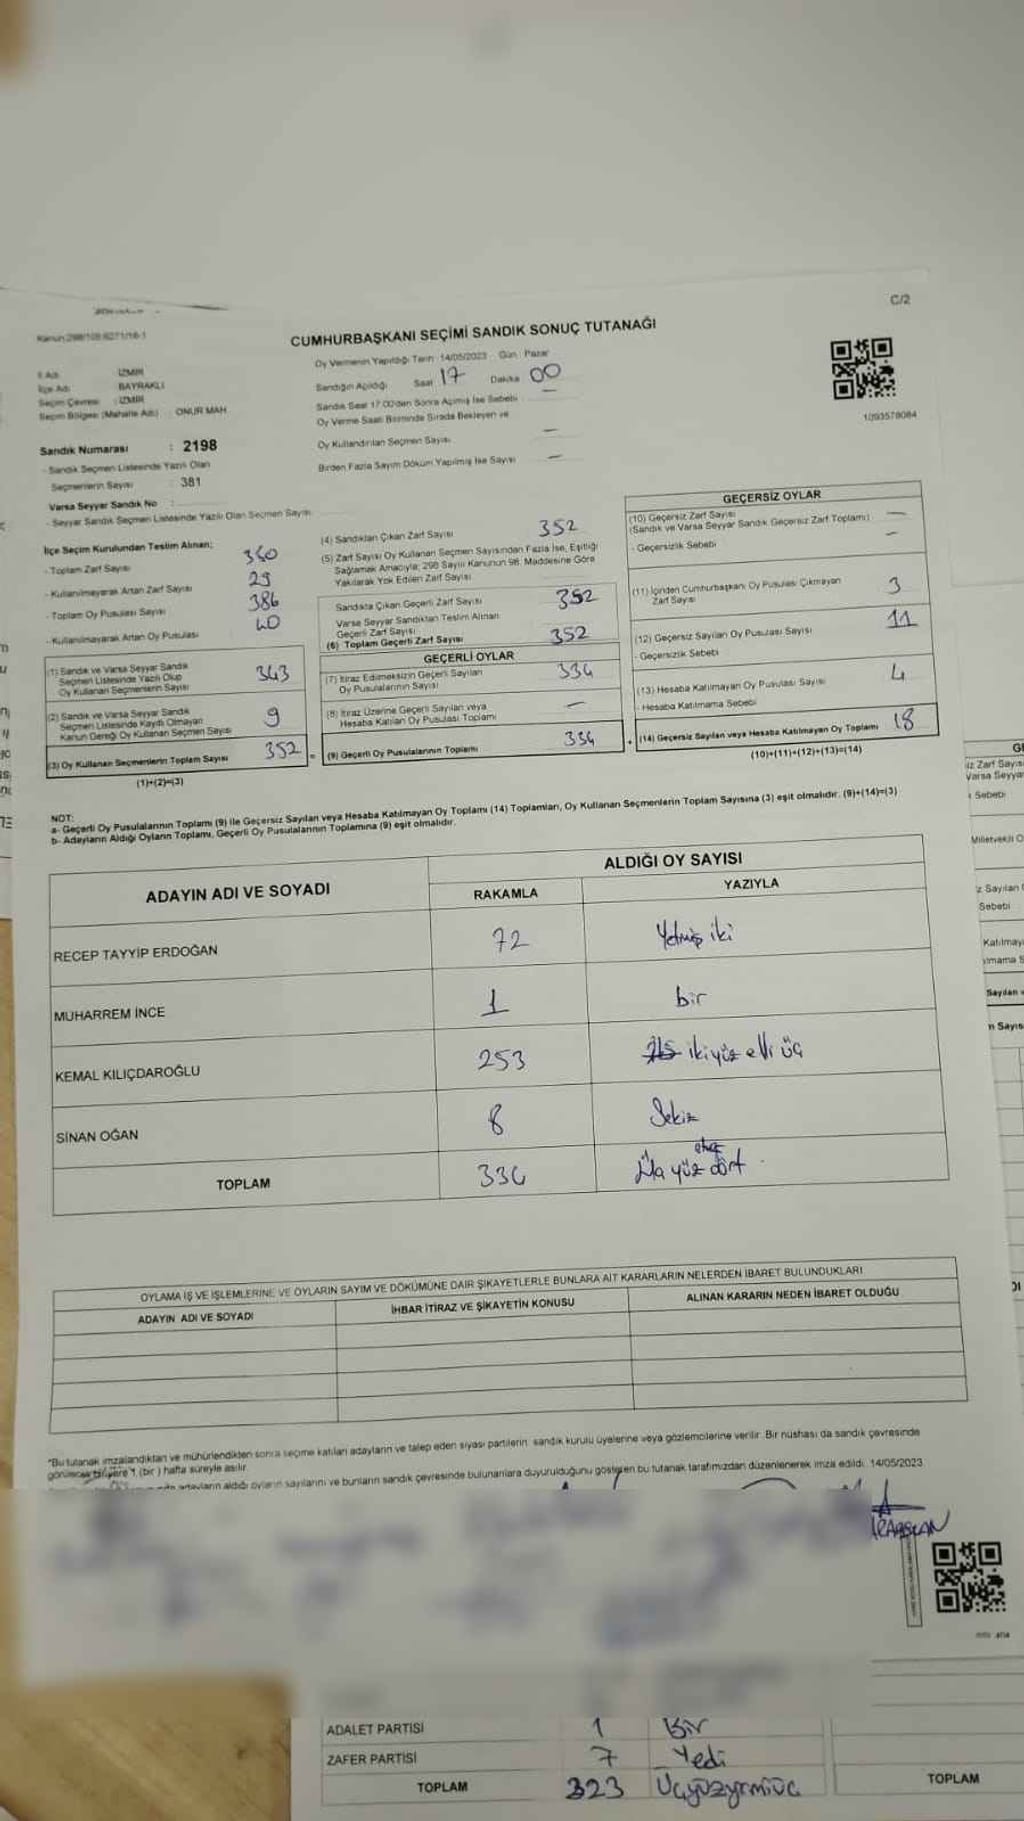 C/2
Kanun:298/105 6271/16-1
CUMHURBAŞKANI SEÇİMİ SANDIK SONUÇ TUTANAĞI
İl Adı İZMİR
İlçe Adı BAYRAKLI
Seçim Çevresi : İZMİR
Seçim Bölgesi (Mahalle Adı) : ONUR MAH
Oy Vermenin Yapıldığı Tarih 14/05/2023 Gün Pazar
Sandığın Açıldığı Saat 17 Dakika 00
Sandık Saat 17:00'den Sonra Açılmış İse Sebebi —
Oy Verme Saati Bitiminde Sırada Bekleyen ve
Oy Kullandırılan Seçmen Sayısı —
Birden Fazla Sayım Döküm Yapılmış İse Sayısı —
1093578084
Sandık Numarası : 2198
- Sandık Seçmen Listesinde Yazılı Olan
Seçmenlerin Sayısı : 381
Varsa Seyyar Sandık No :
- Seyyar Sandık Seçmen Listesinde Yazılı Olan Seçmen Sayısı
İlçe Seçim Kurulundan Teslim Alınan;
- Toplam Zarf Sayısı
- Kullanılmayarak Artan Zarf Sayısı 29
- Toplam Oy Pusulası Sayısı 386
- Kullanılmayarak Artan Oy Pusulası 40
(1) Sandık ve Varsa Seyyar Sandık
Seçmen Listesinde Yazılı Olup
Oy Kullanan Seçmenlerin Sayısı 343
(2) Sandık ve Varsa Seyyar Sandık
Seçmen Listesinde Kayıtlı Olmayan
Kanun Gereği Oy Kullanan Seçmen Sayısı 9
(3) Oy Kullanan Seçmenlerin Toplam Sayısı 352
(1)+(2)=(3)
(4) Sandıktan Çıkan Zarf Sayısı 352
(5) Zarf Sayısı Oy Kullanan Seçmen Sayısından Fazla İse, Eşitliği
Sağlamak Amacıyla; 298 Sayılı Kanunun 98. Maddesine Göre
Yakılarak Yok Edilen Zarf Sayısı
Sandıkta Çıkan Geçerli Zarf Sayısı 352
Varsa Seyyar Sandıktan Teslim Alınan
Geçerli Zarf Sayısı
(6) Toplam Geçerli Zarf Sayısı 352
GEÇERLİ OYLAR
(7) İtiraz Edilmeksizin Geçerli Sayılan
Oy Pusulalarının Sayısı 334
(8) İtiraz Üzerine Geçerli Sayılan veya
Hesaba Katılan Oy Pusulası Toplamı —
= (9) Geçerli Oy Pusulalarının Toplamı 334
GEÇERSİZ OYLAR
(10) Geçersiz Zarf Sayısı —
(Sandık ve Varsa Seyyar Sandık Geçersiz Zarf Toplamı) —
- Geçersizlik Sebebi
(11) İçinden Cumhurbaşkanı Oy Pusulası Çıkmayan
Zarf Sayısı 3
(12) Geçersiz Sayılan Oy Pusulası Sayısı 11
- Geçersizlik Sebebi
(13) Hesaba Katılmayan Oy Pusulası Sayısı 4
- Hesaba Katılmama Sebebi
+ (14) Geçersiz Sayılan veya Hesaba Katılmayan Oy Toplamı 18
(10)+(11)+(12)+(13)=(14)
NOT:
a- Geçerli Oy Pusulalarının Toplamı (9) ile Geçersiz Sayılan veya Hesaba Katılmayan Oy Toplamı (14) Toplamları, Oy Kullanan Seçmenlerin Toplam Sayısına (3) eşit olmalıdır. (9)+(14)=(3)
b- Adayların Aldığı Oyların Toplamı, Geçerli Oy Pusulalarının Toplamına (9) eşit olmalıdır.
ADAYIN ADI VE SOYADI
ALDIĞI OY SAYISI
RAKAMLA YAZIYLA
RECEP TAYYİP ERDOĞAN 72 Yetmiş iki
MUHARREM İNCE 1 bir
KEMAL KILIÇDAROĞLU 253 ikiyüz elli üç
SİNAN OĞAN 8 Sekiz
TOPLAM 334 yüz otuz dört
OYLAMA İŞ VE İŞLEMLERİNE VE OYLARIN SAYIM VE DÖKÜMÜNE DAİR ŞİKAYETLERLE BUNLARA AİT KARARLARIN NELERDEN İBARET BULUNDUKLARI
ADAYIN ADI VE SOYADI İHBAR İTİRAZ VE ŞİKAYETİN KONUSU ALINAN KARARIN NEDEN İBARET OLDUĞU
*Bu tutanak imzalandıktan ve mühürlendikten sonra seçime katılan adayların ve talep eden siyasi partilerin sandık kurulu üyelerine veya gözlemcilerine verilir. Bir nüshası da sandık çevresinde
görülecek bir yere 1 (bir) hafta süreyle asılır.
adayların aldığı oyların sayılarını ve bunların sandık çevresinde bulunanlara duyurulduğunu gösteren bu tutanak tarafımızdan düzenlenerek imza edildi. 14/05/2023
ADALET PARTİSİ 1 Bir
ZAFER PARTİSİ 7 Yedi
TOPLAM 323 Üçyüzyirmiüç
TOPLAM